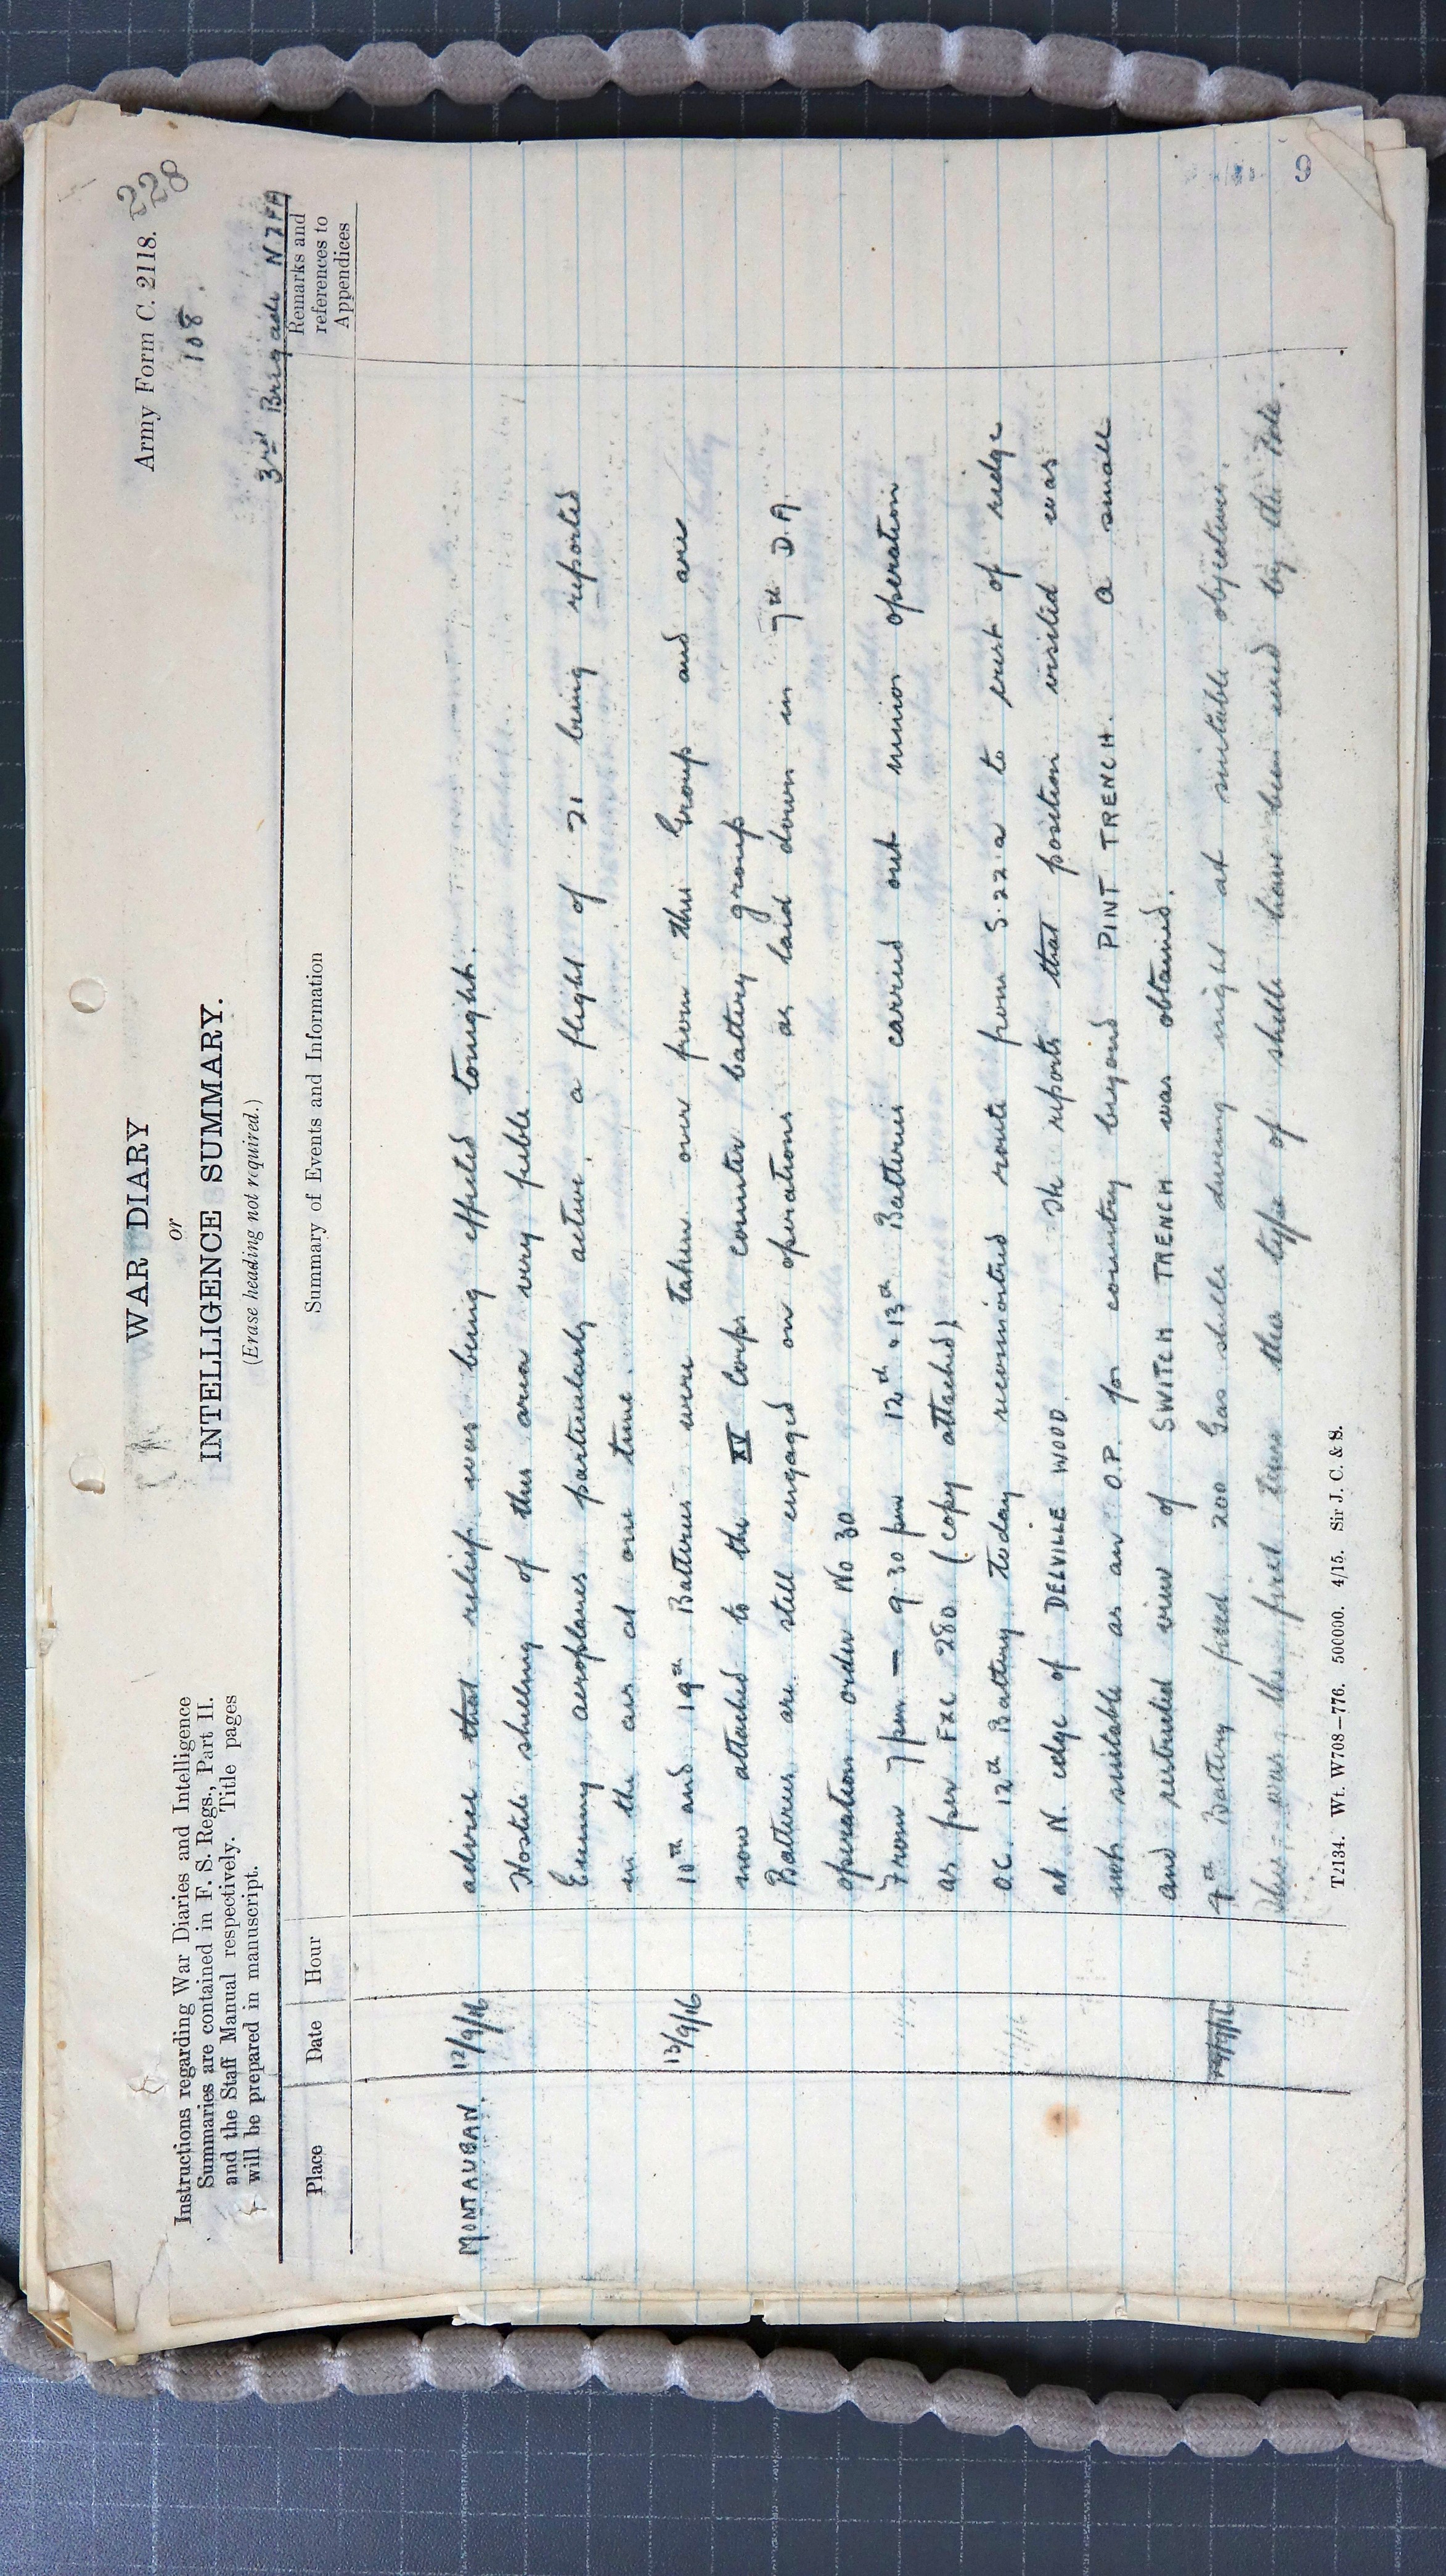 Army Form C. 2118.
228
108.
WAR DIARY
or
INTELLIGENCE SUMMARY.
(Erase heading not required.)
3rd Brigade NZFA
Instructions regarding War Diaries and Intelligence
Summaries are contained in F. S. Regs., Part II.
and the Staff Manual respectively. Title pages
will be prepared in manuscript.
Place
Date
Hour
Summary of Events and Information
Remarks and
references to
Appendices
MONTAUBAN. 12/9/16 advice that relief was being effected tonight.
Hostile shelling of this area very feeble.
Enemy aeroplanes particularly active, a flight of 21 being reported
in the air at one time.
13/9/16 10th and 19th Batteries were taken over from this Group and are
now attached to the XV Corps counter battery group
Batteries are still engaged on operations as laid down in 7th D.A.
operation order No 30
From 7 pm — 9.30 pm 12th & 13th Batteries carried out minor operation
as per FXC 280 (copy attached)
O.C. 12th Battery today reconnoitred route from S.22.a to crest of ridge
at N. edge of DELVILLE WOOD. He reports that position visited was
not suitable as an O.P. for country beyond PINT TRENCH. a small
and restricted view of SWITCH TRENCH was obtained.
4th Battery fired 200 Gas shells during night at suitable objectives.
This was the first time this type of shells have been used by the Bde.
T2134. Wt. W708—776. 500000. 4/15. Sir J. C. & S.
9